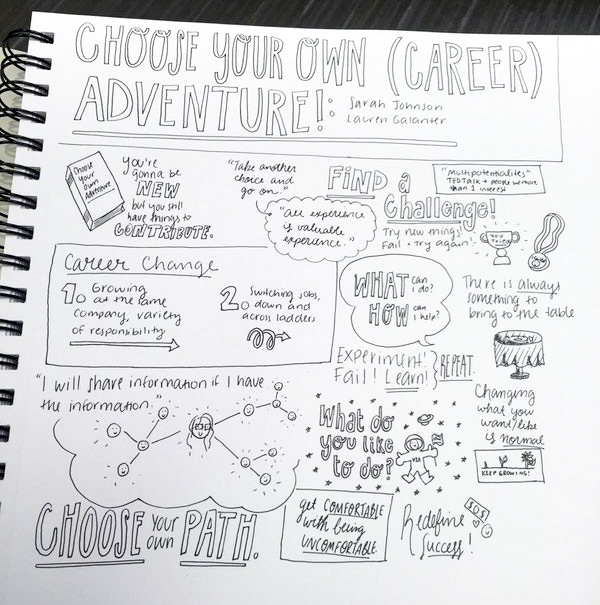 CHOOSE YOUR OWN (CAREER)
ADVENTURE!:
Sarah Johnson
Lauren Galanter
Choose
Your
Own
Adventure
you're
gonna be
NEW
but you still
have things to
CONTRIBUTE.
"Take another
choice and
go on."
"all experience
is valuable
experience."
FIND a
Challenge!
Try new things!
Fail + try again!
"Multipotentialites"
TEDTalk + people w more
than 1 interest
YOU
TRIED
Career Change
1. Growing
at the same
company, variety
of responsibility
2. Switching jobs,
down and
across ladders
WHAT can
i do?
HOW can
i help?
There is always
something to
bring to the table
Experiment!
Fail! Learn! } REPEAT.
"I will share information if I have
the information."
What do
you like
to do?
Changing
what you
want/like
is normal
KEEP GROWING!
CHOOSE your
own PATH.
get COMFORTABLE
with being
UNCOMFORTABLE.
Redefine
Success!